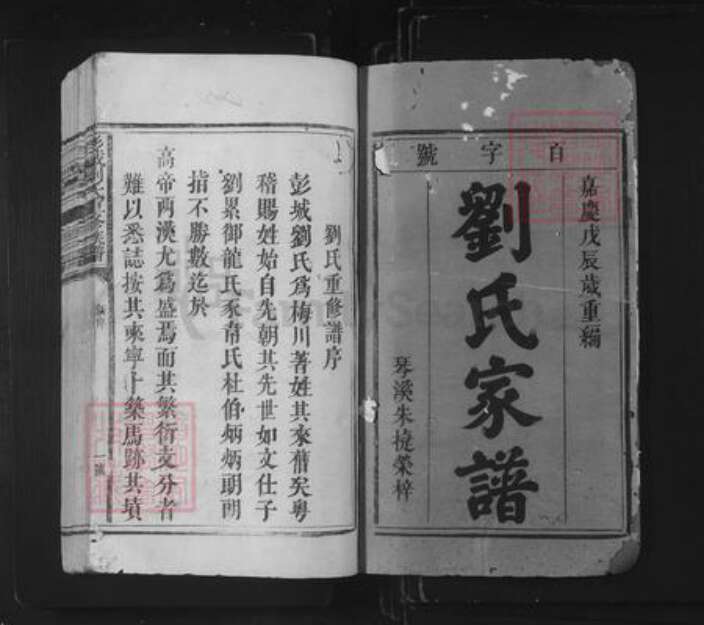 百字號
嘉慶戊辰歲重編
劉氏家譜
琴溪朱捷榮梓
劉氏重修譜序
彭城劉氏爲梅川著姓其來舊矣粤
稽賜姓始自先朝其先世如文仕子
劉累御龍氏豕韋氏杜伯炳炳朗朗
指不勝數迄於
高帝兩漢尤爲盛焉而其繁衍支分者
難以悉誌按其來寧卜築馬跡其墳